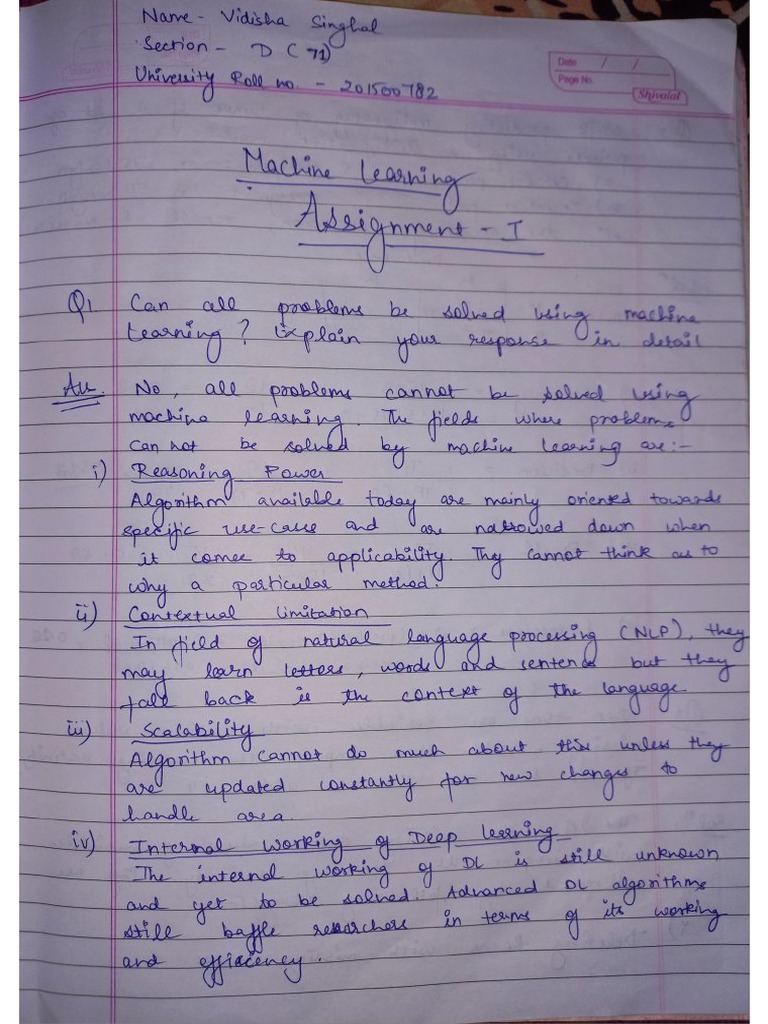 Name - Vidisha Singhal
Section - D (71)
University Roll no. - 201500782
Date / /
Page No.
Shivalal
Machine Learning
Assignment - I
Q1 Can all problems be solved using machine
learning? Explain your response in detail
Ans. No, all problems cannot be solved using
machine learning. The fields where problems
can not be solved by machine learning are:-
i) Reasoning Power
Algorithm available today are mainly oriented towards
specific use-cases and are narrowed down when
it comes to applicability. They cannot think as to
why a particular method.
ii) Contextual limitation
In field of natural language processing (NLP), they
may learn letters, words and sentence but they
fall back is the context of the language.
iii) Scalability
Algorithm cannot do much about this unless they
are updated constantly for new changes to
handle area.
iv) Internal working of Deep learning
The internal working of DL is still unknown
and yet to be solved. Advanced DL algorithms
still baffle researchers in terms of its working
and efficiency.